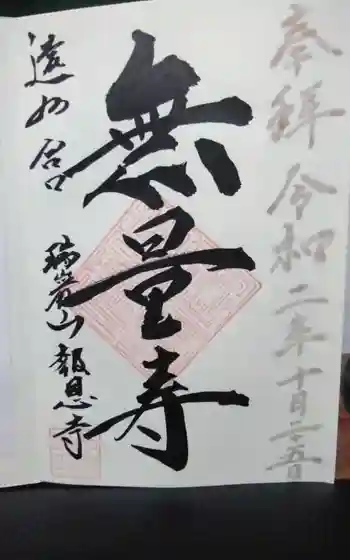 奉拝 令和二年十月二五日
無量寿
遠州 宮口
瑞岩山 報恩寺